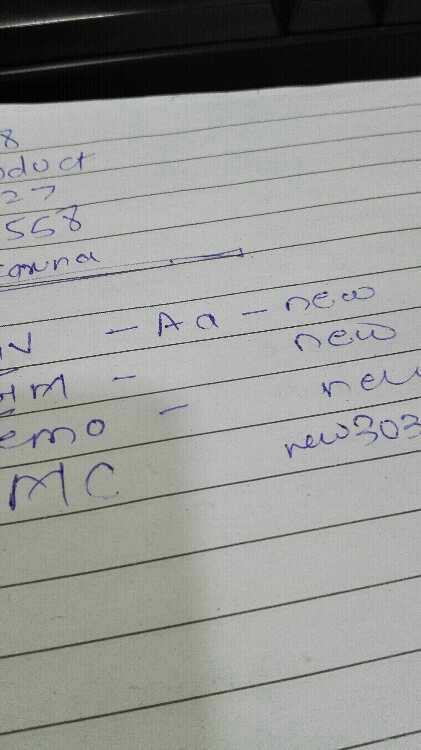 8
oduct
27
558
N - Aa - new
M - new
emo - new
MC new303